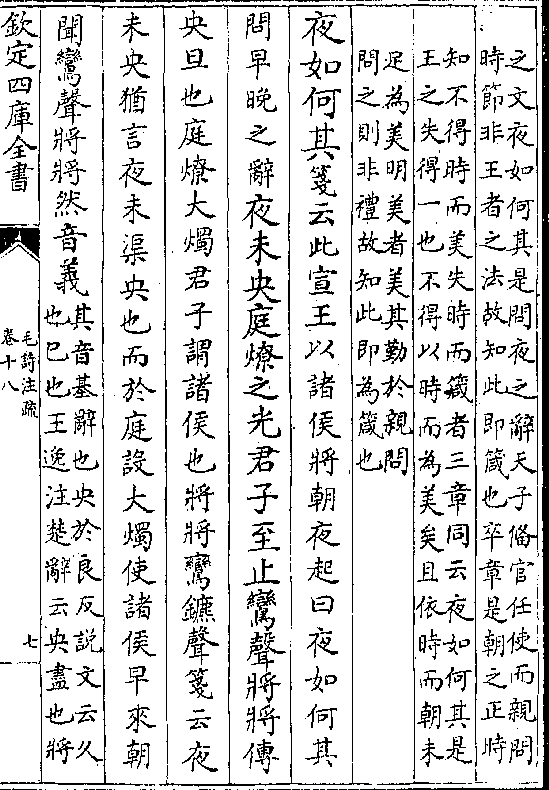 之文夜如何其是問夜之辭天子備官任使而親問
時節非王者之法故知此即箴也卒章是朝之正時
知不得時而美失時而箴者三章同云夜如何其是
王之失得一也不得以時而為美矣且依時而朝未
足為美明美者美其勤於親問
問之則非禮故知此即為箴也
夜如何其箋云此宣王以諸侯將朝夜起曰夜如何其
問早晚之辭夜未央庭燎之光君子至止鸞聲將將傳
央旦也庭燎大燭君子謂諸侯也將將鸞鑣聲箋云夜
未央猶言夜未渠央也而於庭設大燭使諸侯早來朝
聞鸞聲將將然音義
其音基辭也央於良反説文云久
也巳也王逸注楚辭云央盡也將
欽定四庫全書
毛詩注疏
卷十八
七